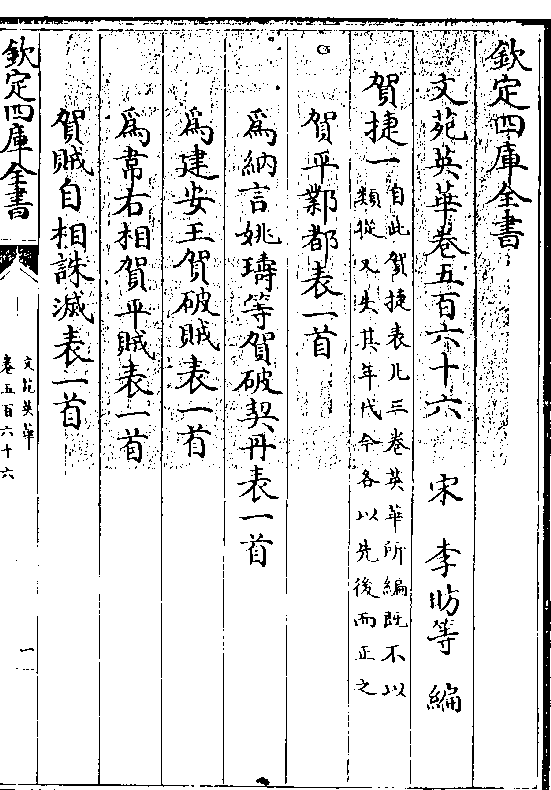 欽定四庫全書
文苑英華卷五百六十六 宋 李昉等 編
賀捷一 自此賀捷表凡三卷英華所編既不以
類從又失其年代今各以先後而正之
賀平鄴都表一首
為納言姚璹等賀破契丹表一首
為建安王賀破賊表一首
為韋右相賀平賊表一首
賀賊自相誅滅表一首
欽定四庫全書
文苑英華
卷五百六十六
一